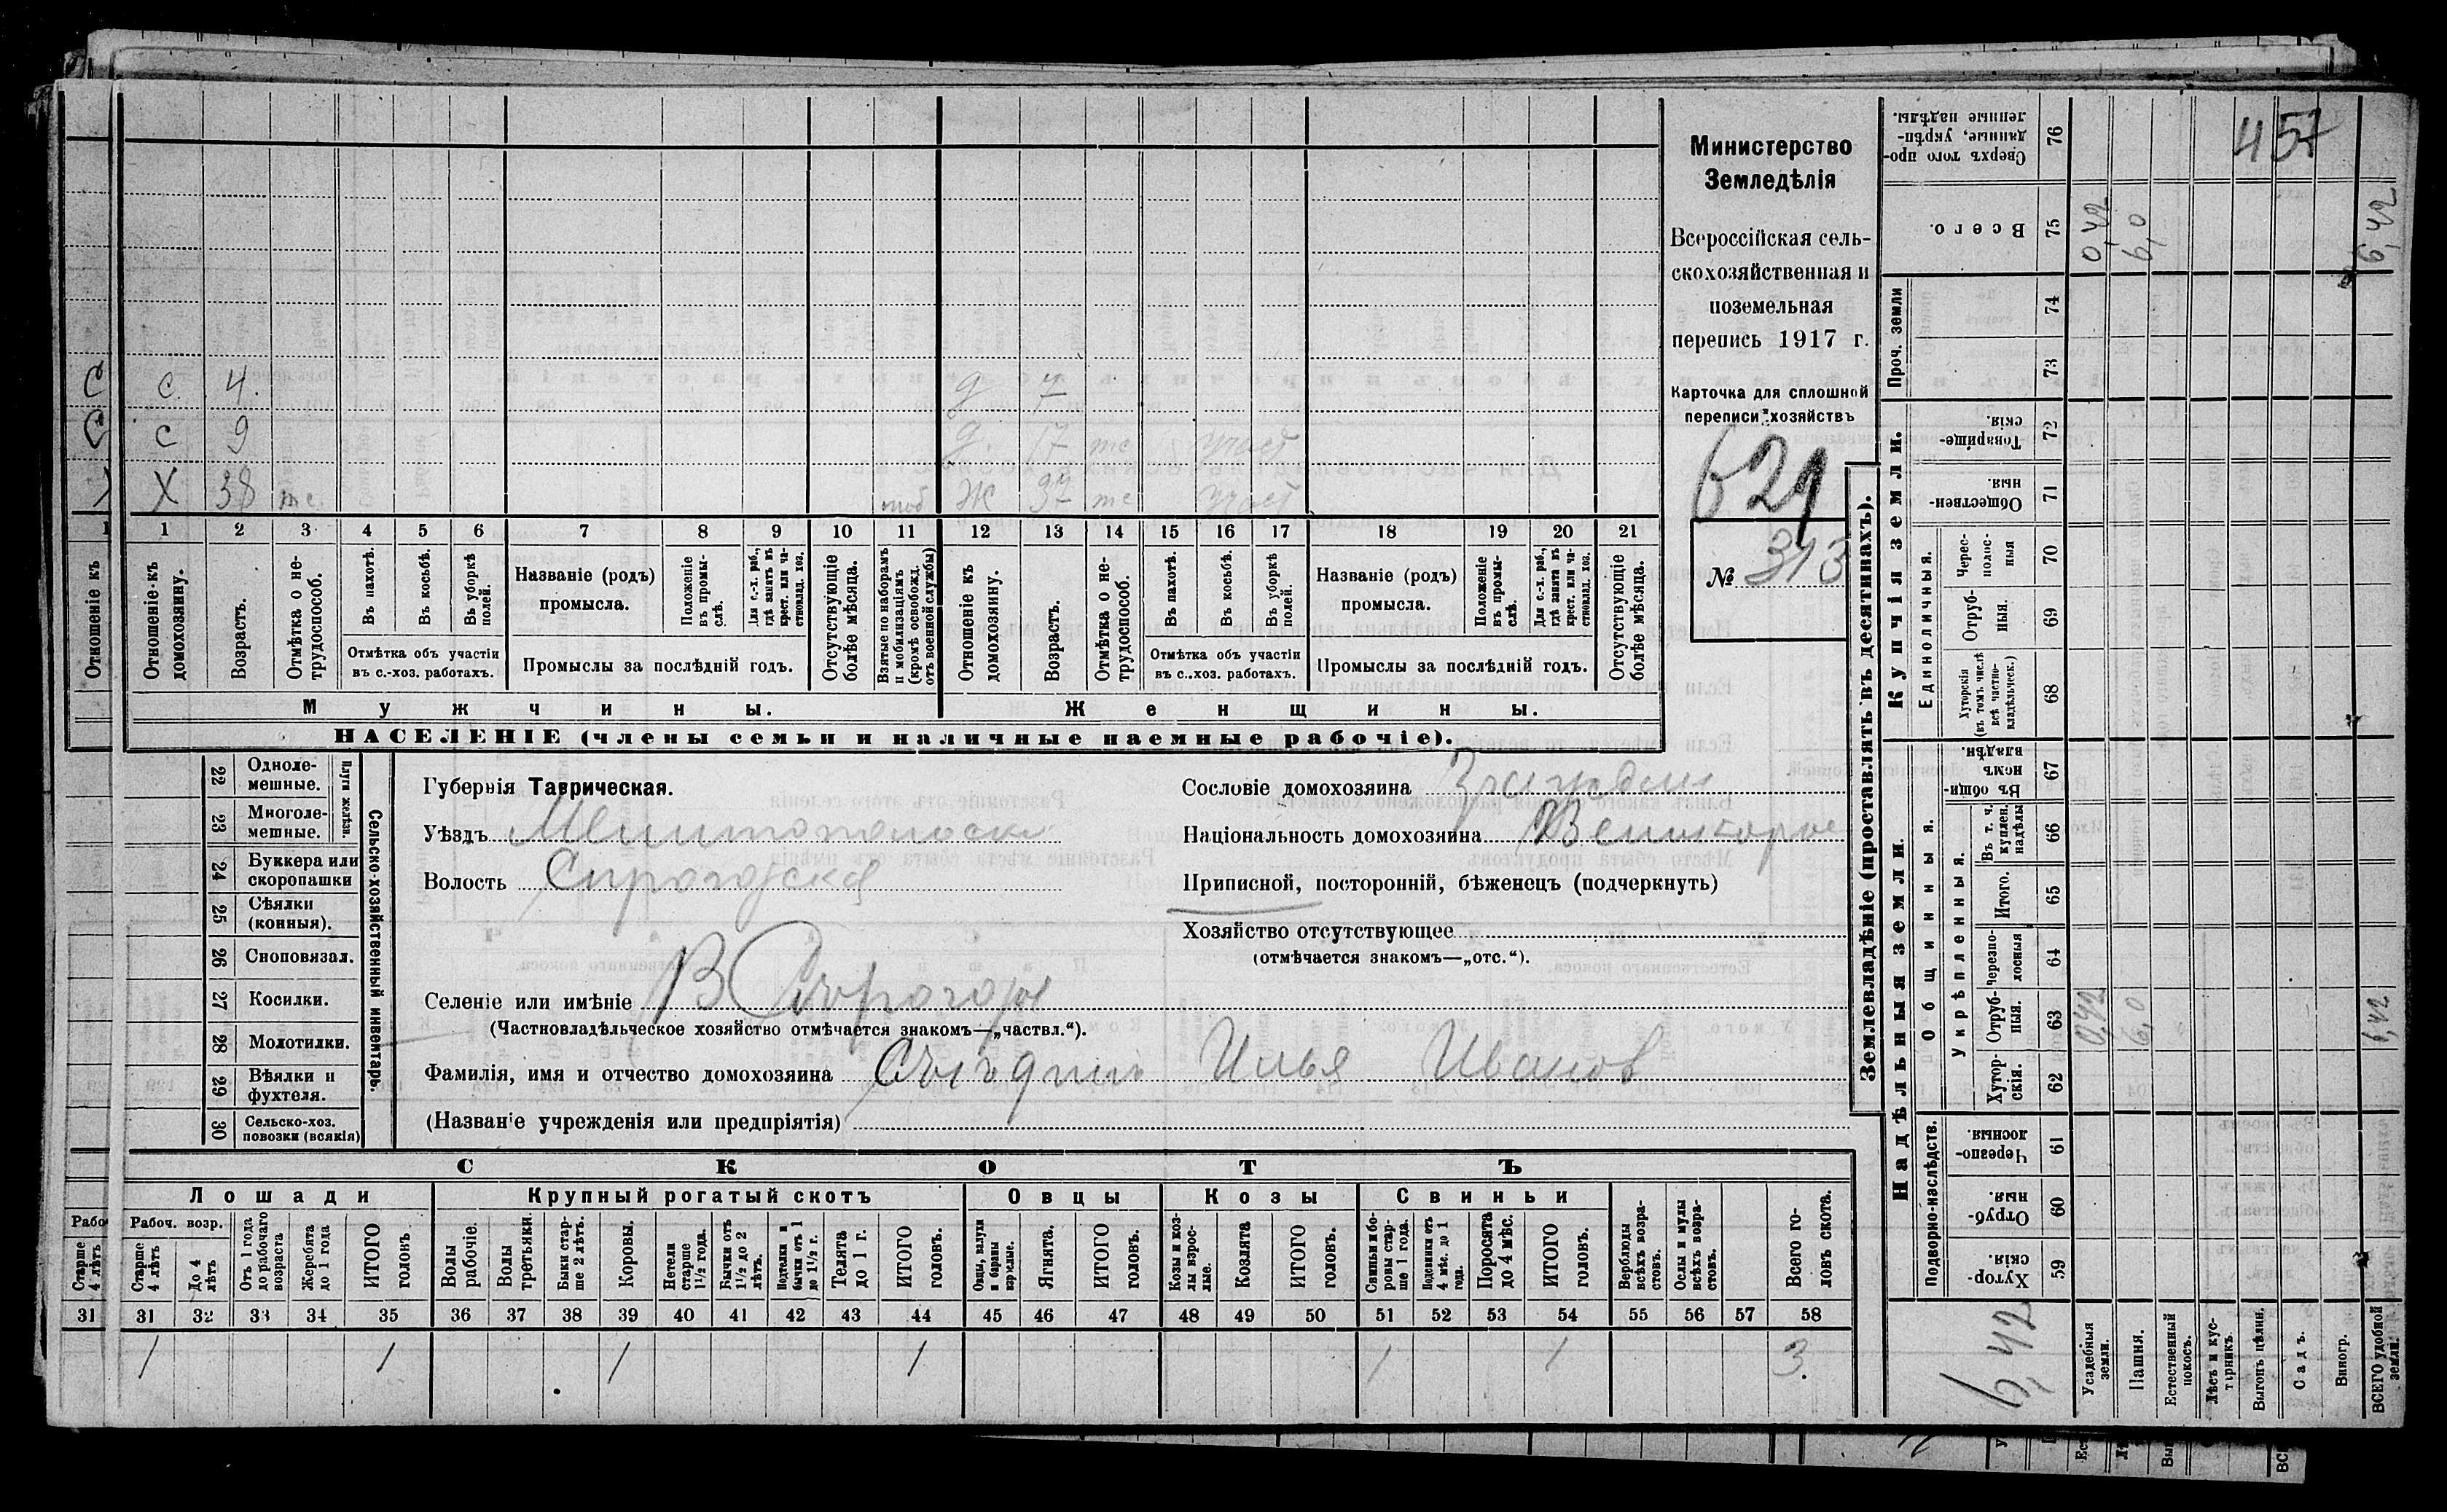 Министерство
Земледѣлія
Всероссійская сель-
скохозяйственная и
поземельная
перепись 1917 г.
Карточка для сплошной
переписи хозяйствъ
621
№ 313
457
С 4 д 7
С 9 д. 17 Участ
Х 38 моб Ж 37 Участ
1 2 3 4 5 6 7 8 9 10 11 12 13 14 15 16 17 18 19 20 21
Отношеніе къ домохозяину.
Возрастъ.
Отмѣтка о не-
трудоспособ.
Въ пахотѣ.
Въ косьбѣ.
Въ уборкѣ
полей.
Отмѣтка объ участіи
въ с.-хоз. работахъ.
Названіе (родъ)
промысла.
Положеніе
въ промы-
слѣ.
Для с.-х. раб.,
гдѣ занятъ въ
крест. или ча-
стновлад. хоз.
Промыслы за послѣдній годъ.
Отсутствующіе
болѣе мѣсяца.
Взятые по наборамъ
и мобилизаціямъ
(кромѣ освобожд.
отъ военной службы)
Отношеніе къ
домохозяину.
Возрастъ.
Отмѣтка о не-
трудоспособ.
Въ пахотѣ.
Въ косьбѣ.
Въ уборкѣ
полей.
Отмѣтка объ участіи
въ с.-хоз. работахъ.
Названіе (родъ)
промысла.
Положеніе
въ промы-
слѣ.
Для с.-х. раб.,
гдѣ занята въ
крест. или ча-
стновлад. хоз.
Промыслы за послѣдній годъ.
Отсутствующіе
болѣе мѣсяца.
Мужчины.
Женщины.
НАСЕЛЕНІЕ (члены семьи и наличные наемные рабочіе).
22 Одноле-
мешные.
23 Многоле-
мешные.
Плуги желѣзн.
24 Буккера или
скоропашки
25 Сѣялки
(конныя).
26 Сноповязал.
27 Косилки.
28 Молотилки.
29 Вѣялки и
фухтеля.
30 Сельско-хоз.
повозки (всякія)
Сельско-хозяйственный инвентарь.
Губернія Таврическая.
Уѣздъ Мелитопольск
Волость Сирогозская
Селеніе или имѣніе В Сирогозы
(Частновладѣльческое хозяйство отмѣчается знакомъ—„частвл.“).
Фамилія, имя и отчество домохозяина Илья Иванов
(Названіе учрежденія или предпріятія)
Сословіе домохозяина
Національность домохозяина Великорос
Приписной, посторонній, бѣженецъ (подчеркнуть)
Хозяйство отсутствующее
(отмѣчается знакомъ—„отс.“).
СКОТЪ
Лошади
Крупный рогатый скотъ
Овцы
Козы
Свиньи
Рабоч. возр.
Старше
4 лѣтъ
До 4
лѣтъ
Отъ 1 года
до рабочаго
возраста
Жеребята
до 1 года
ИТОГО
головъ
Волы
рабочіе.
Волы
третьяки.
Быки стар-
ше 2 лѣтъ.
Коровы.
Нетели
старше
1½ года.
Бычки отъ
1½ до 2
лѣтъ.
Подтелки и
бычки отъ 1
до 1½ г.
Телята
до 1 г.
ИТОГО
головъ.
Овцы, валухи
и бараны
взрослые.
Ягнята.
ИТОГО
головъ.
Козы и коз-
лы взрос-
лые.
Козлята
ИТОГО
головъ.
Свиньи и бо-
ровы стар-
ше 1 года.
Подсвинки отъ
4 мѣс. до 1
года.
Поросята
до 4 мѣс.
ИТОГО
головъ.
Верблюды
всѣхъ возра-
стовъ.
Ослы и мулы
всѣхъ возра-
стовъ.
Всего го-
ловъ скота.
31 32 33 34 35 36 37 38 39 40 41 42 43 44 45 46 47 48 49 50 51 52 53 54 55 56 57 58
1 1 1 1 1 1 3.
Землевладѣніе (проставлять въ десятинахъ).
Надѣльныя земли.
Подворно-наслѣдств.
Хутор-
скія. 59
Отруб-
ныя. 60
Черезпо-
лосныя. 61
Общинныя.
Укрѣпленныя.
Хутор-
скія. 62
Отруб-
ныя. 63
Черезпо-
лосныя 64
Итого. 65
Въ т. ч.
куплен.
надѣлы 66
Въ общи-
номъ
владѣн. 67
Купчія земли.
Единоличныя.
Хуторскія
(въ томъ числѣ
всѣ частно-
владѣльческ.) 68
Отруб-
ныя. 69
Черес-
полос-
ныя 70
Обществен-
ныя. 71
Товарище-
скія. 72
Проч. земли
73 74
Всего. 75
Сверхъ того про-
данные, укрѣп-
ленные надѣлы. 76
Усадебныя
земли. 0,42 0,42
Пашня. 6,0 6,0
Естественный
покосъ.
Лѣсъ и кус-
тарникъ.
Выгонъ цѣлин.
Садъ.
Виногр.
ВСЕГО удобной
земли. 6,42 6,42
6,42